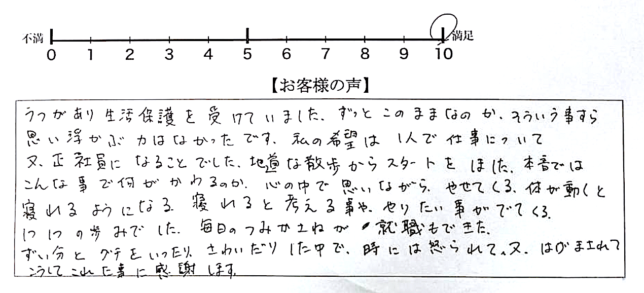 不満 満足
0 1 2 3 4 5 6 7 8 9 10
【お客様の声】
うつがあり生活保護を受けていました、ずっとこのままなのか、そういう事すら
思い浮かぶ力はなかったです。私の希望は1人で仕事について
又、正社員になることでした、地道な散歩からスタートをしました、本音では
こんな事で何がかわるのか、心の中で思いながら、やせてくる、体が動くと
寝れるようになる、寝れると考える事や、やりたい事がでてくる、
1つ1つの歩みでした、毎日のつみかさねが 就職もできた、
ずい分とグチをいったり、さわいだりした中で、時には怒られて、又、はげまされて
こうしてこれた事に感謝します